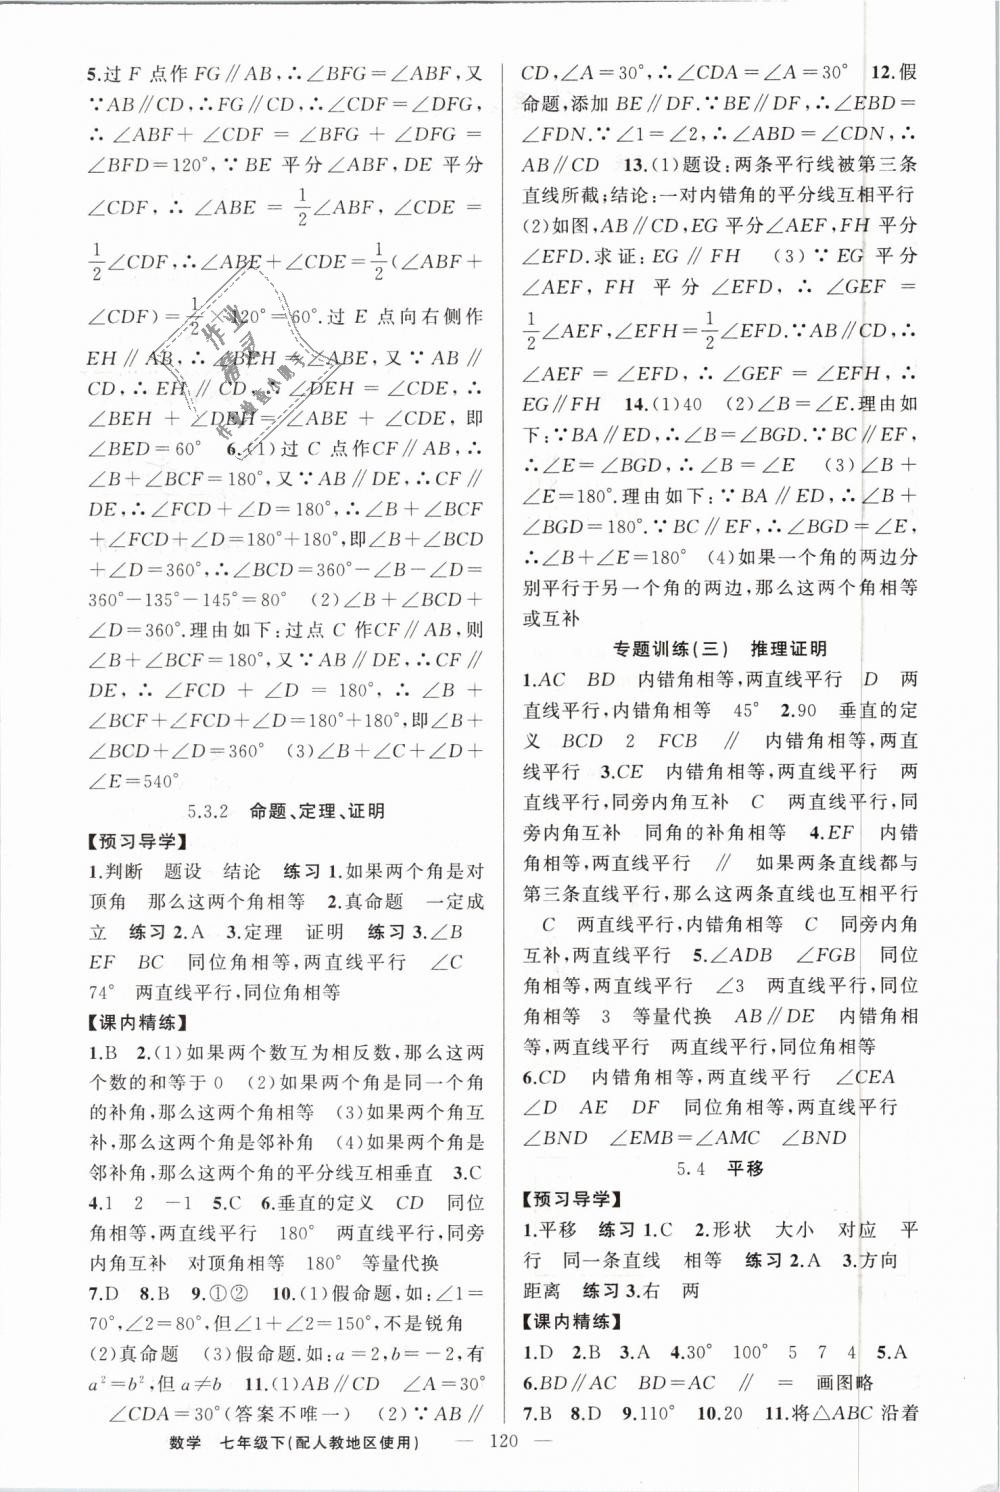 5.过 F 点作 FG∥AB,∴∠BFG=∠ABF,又
∵AB∥CD,∴FG∥CD,∴∠CDF=∠DFG,
∴∠ABF+∠CDF=∠BFG+∠DFG=
∠BFD=120°,∵BE 平分∠ABF,DE 平分
∠CDF,∴∠ABE=1/2∠ABF,∠CDE=
1/2∠CDF,∴∠ABE+∠CDE=1/2(∠ABF+
∠CDF)=1/2 120°=60°.过 E 点向右侧作
EH∥AB,∴∠BEH=∠ABE,又∵AB∥
CD,∴EH∥CD,∴∠DEH=∠CDE,∴
∠BEH+∠DEH=∠ABE+∠CDE,即
∠BED=60° 6.(1)过 C 点作CF∥AB,∴
∠B+∠BCF=180°,又∵AB∥DE,∴CF∥
DE,∴∠FCD+∠D=180°,∴∠B+∠BCF
+∠FCD+∠D=180°+180°,即∠B+∠BCD
+∠D=360°,∴∠BCD=360°-∠B-∠D=
360°-135°-145°=80° (2)∠B+∠BCD+
∠D=360°.理由如下:过点 C 作CF∥AB,则
∠B+∠BCF=180°,又∵AB∥DE,∴CF∥
DE,∴∠FCD+∠D=180°,∴∠B+
∠BCF+∠FCD+∠D=180°+180°,即∠B+
∠BCD+∠D=360° (3)∠B+∠C+∠D+
∠E=540°
5.3.2 命题、定理、证明
【预习导学】
1.判断 题设 结论 练习 1.如果两个角是对
顶角 那么这两个角相等 2.真命题 一定成
立 练习 2.A 3.定理 证明 练习 3.∠B
EF BC 同位角相等,两直线平行 ∠C
74° 两直线平行,同位角相等
【课内精练】
1.B 2.(1)如果两个数互为相反数,那么这两
个数的和等于 0 (2)如果两个角是同一个角
的补角,那么这两个角相等 (3)如果两个角互
补,那么这两个角是邻补角 (4)如果两个角是
邻补角,那么这两个角的平分线互相垂直 3.C
4.1 2 -1 5.C 6.垂直的定义 CD 同位
角相等,两直线平行 180° 两直线平行,同旁
内角互补 对顶角相等 180° 等量代换
7.D 8.B 9.①② 10.(1)假命题,如:∠1=
70°,∠2=80°,但∠1+∠2=150°,不是锐角
(2)真命题 (3)假命题.如:a=2,b=-2,有
a²=b²,但 a≠b 11.(1)AB∥CD ∠A=30°
∠CDA=30°(答案不唯一) (2)∵AB∥
CD,∠A=30°,∴∠CDA=∠A=30° 12.假
命题,添加 BE∥DF.∵BE∥DF,∴∠EBD=
∠FDN.∵∠1=∠2,∴∠ABD=∠CDN,∴
AB∥CD 13.(1)题设:两条平行线被第三条
直线所截;结论:一对内错角的平分线互相平行
(2)如图,AB∥CD,EG 平分∠AEF,FH 平分
∠EFD.求证:EG∥FH (3)∵EG 平分
∠AEF,FH 平分∠EFD,∴∠GEF=
1/2∠AEF,∠EFH=1/2∠EFD.∵AB∥CD,∴
∠AEF=∠EFD,∴∠GEF=∠EFH,∴
EG∥FH 14.(1)40 (2)∠B=∠E.理由如
下:∵BA∥ED,∴∠B=∠BGD.∵BC∥EF,
∴∠E=∠BGD,∴∠B=∠E (3)∠B+
∠E=180°.理由如下:∵BA∥ED,∴∠B+
∠BGD=180°.∵BC∥EF,∴∠BGD=∠E,
∴∠B+∠E=180° (4)如果一个角的两边分
别平行于另一个角的两边,那么这两个角相等
或互补
专题训练(三) 推理证明
1.AC BD 内错角相等,两直线平行 D 两
直线平行,内错角相等 45° 2.90 垂直的定
义 BCD 2 FCB ∥ 内错角相等,两直
线平行 3.CE 内错角相等,两直线平行 两
直线平行,同旁内角互补 C 两直线平行,同
旁内角互补 同角的补角相等 4.EF 内错
角相等,两直线平行 ∥ 如果两条直线都与
第三条直线平行,那么这两条直线也互相平行
C 两直线平行,内错角相等 C 同旁内角
互补,两直线平行 5.∠ADB ∠FGB 同位
角相等,两直线平行 ∠3 两直线平行,同位
角相等 3 等量代换 AB∥DE 内错角相
等,两直线平行 两直线平行,同位角相等
6.CD 内错角相等,两直线平行 ∠CEA
∠D AE DF 同位角相等,两直线平行
∠BND ∠EMB=∠AMC ∠BND
5.4 平移
【预习导学】
1.平移 练习 1.C 2.形状 大小 对应 平
行 同一条直线 相等 练习 2.A 3.方向
距离 练习 3.右 两
【课内精练】
1.D 2.B 3.A 4.30° 100° 5 7 4 5.A
6.BD∥AC BD=AC ∥ = 画图略
7.B 8.D 9.110° 10.20 11.将△ABC 沿着
数学 七年级下(配人教地区使用) — 120 —
作业
精灵
作业检查小助手